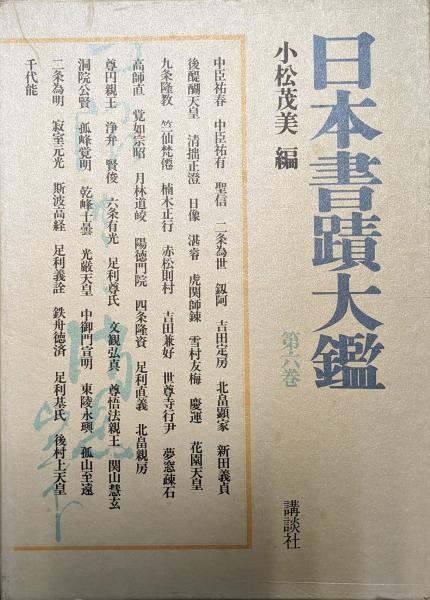 日本書蹟大鑑
第六巻
小松茂美 編
講談社
中臣祐春 中臣祐有 聖信 二条為世 釼阿 吉田定房 北畠顕家 新田義貞
後醍醐天皇 清拙正澄 日像 湛睿 虎関師錬 雪村友梅 慶運 花園天皇
九条隆教 竺仙梵僊 楠木正行 赤松則村 吉田兼好 世尊寺行尹 夢窓疎石
高師直 覚如宗昭 月林道皎 陽徳門院 四条隆資 足利直義 北畠親房
尊円親王 浄弁 賢俊 六条有光 足利尊氏 文観弘真 尊悟法親王 関山慧玄
洞院公賢 孤峰覚明 乾峰士曇 光厳天皇 中御門宣明 東陵永璵 孤山至遠
二条為明 寂室元光 斯波高経 足利義詮 鉄舟徳済 足利基氏 後村上天皇
千代能